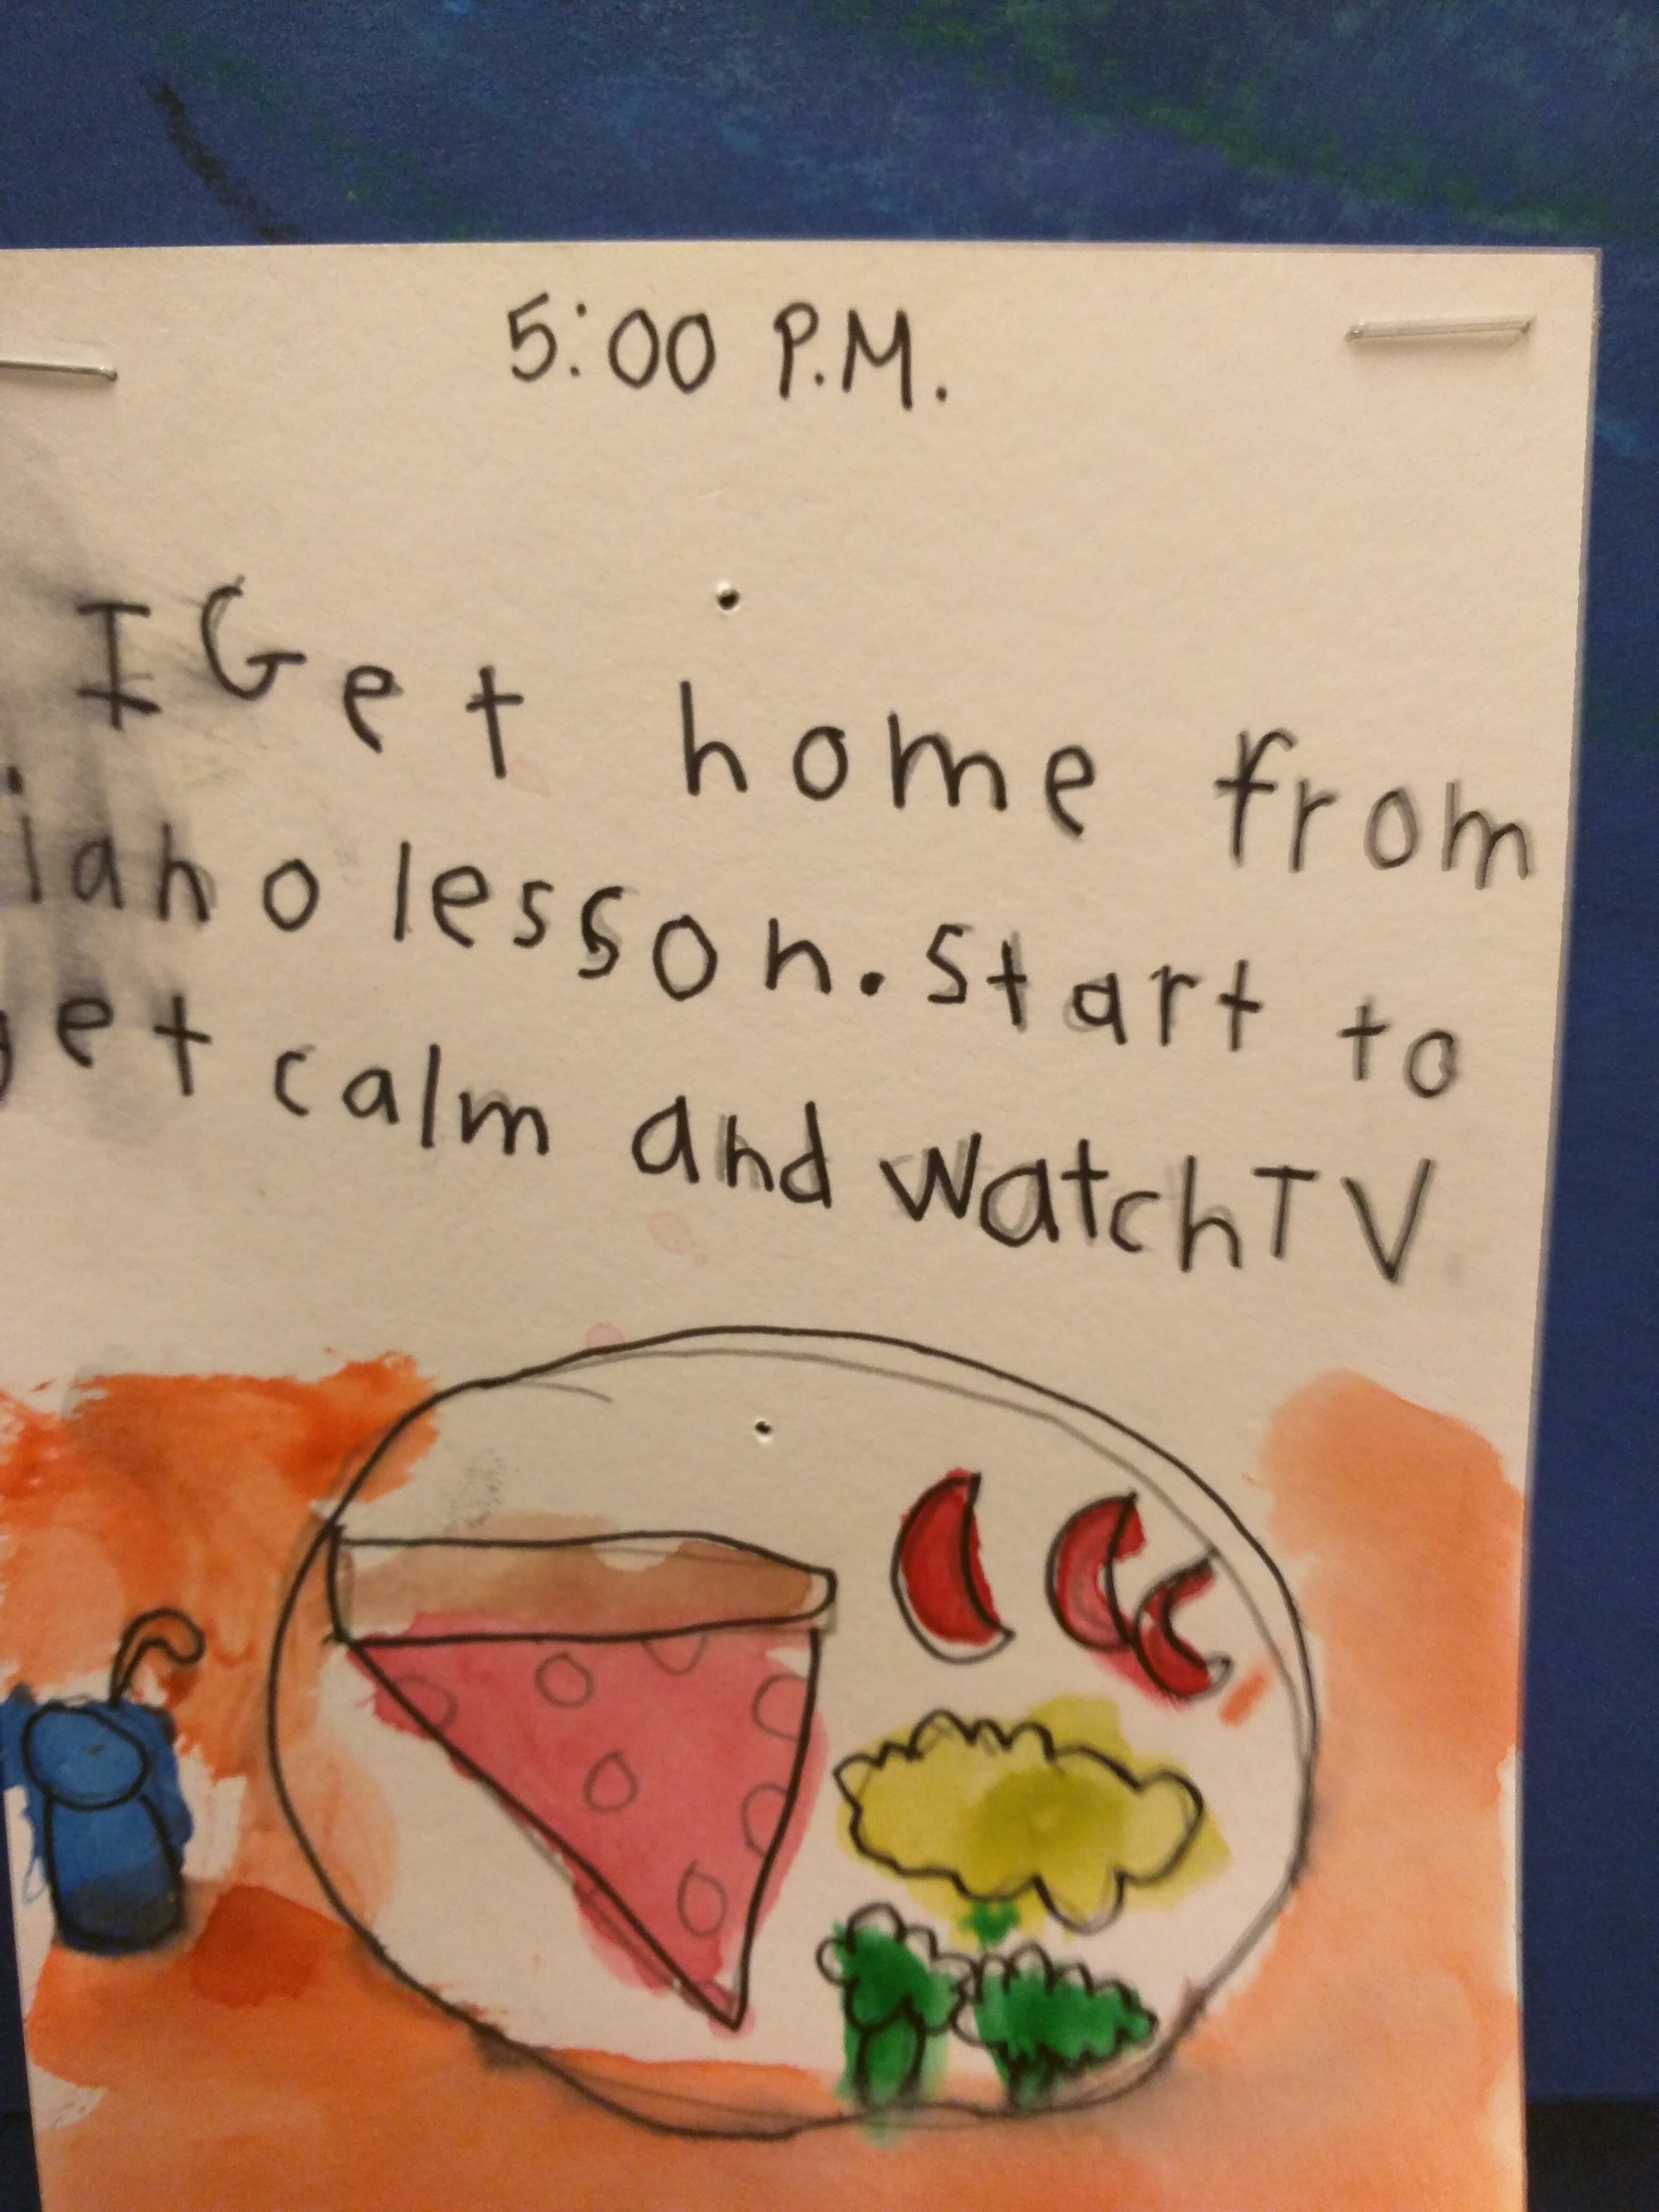 5:00 P.M.
I Get home from
iano lesson. Start to
get calm and watch TV